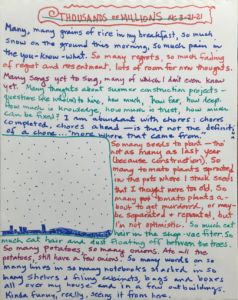 THOUSANDS OR MILLIONS
Many, many grains of rice in my breakfast, so much
snow on the ground this morning, so much pain in
the you-know-what. So many regrets, so much fading
of regret and resentment, lots of room for new thoughts.
Many songs yet to sing, many of which I don't even know
yet. Many thoughts about summer construction projects —
questions (on which) to hire, how much, how far, how deep.
How much is knowledge, how much is trust, how much
can be fixed? I am abundant with chores: chores
completed, chores ahead — is that not the definition
of a chore... "more where that came from."
So many seeds to plant — tho
not as many as last year
(because construction). So
many tomato plants sprouted
in the pots where I stuck seeds
that I thought were too old. So
many tomato plants a-
bout to get purdened, or may-
be separated + repotted, but
I'm not optimistic. So much cat
hair in the shop-vac filter. So
much cat hair and dust floating off between the trees.
So many potatoes, so many onions. Ate all the
potatoes, still have a few onions. So many words so
many lines in so many notebooks stacked in so
many shelves + filing cabinets, bags and boxes
all over my house and in a few outbuildings.
Kinda funny, really, seeing it from here.